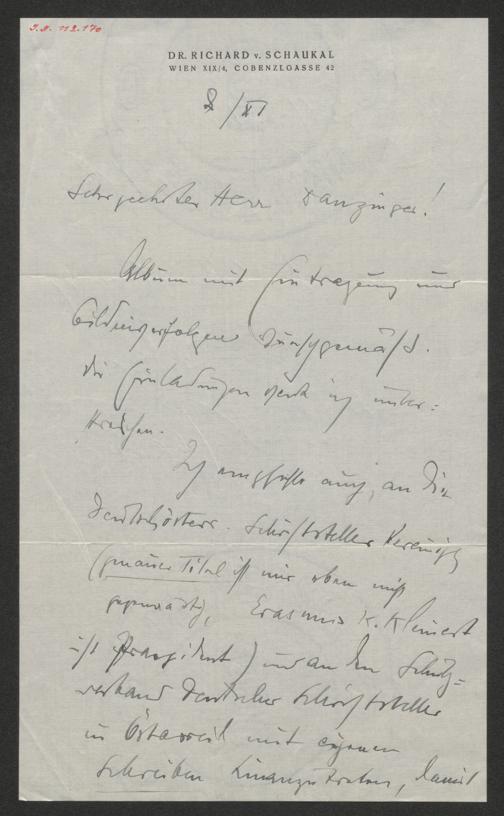 I.N. 112.170
DR. RICHARD v. SCHAUKAL
WIEN XIX/4, COBENZLGASSE 42
8/XI
Sehr geehrter Herr Danzinger!
Album mit Eintragung und
Bild wunschgemäß.
Die Einladungen werd ich unter=
Ich empfehle auch, an die
Deutschösterr. Schriftsteller Vereinig
(genauer Titel ist mir eben nicht
gegenwärtig, Erasmus K. Kleinert
ist Praesident) und an den Schutz=
verband Deutscher Schriftsteller
in Österreich mit eigenen
Schreiben heranzutreten, damit